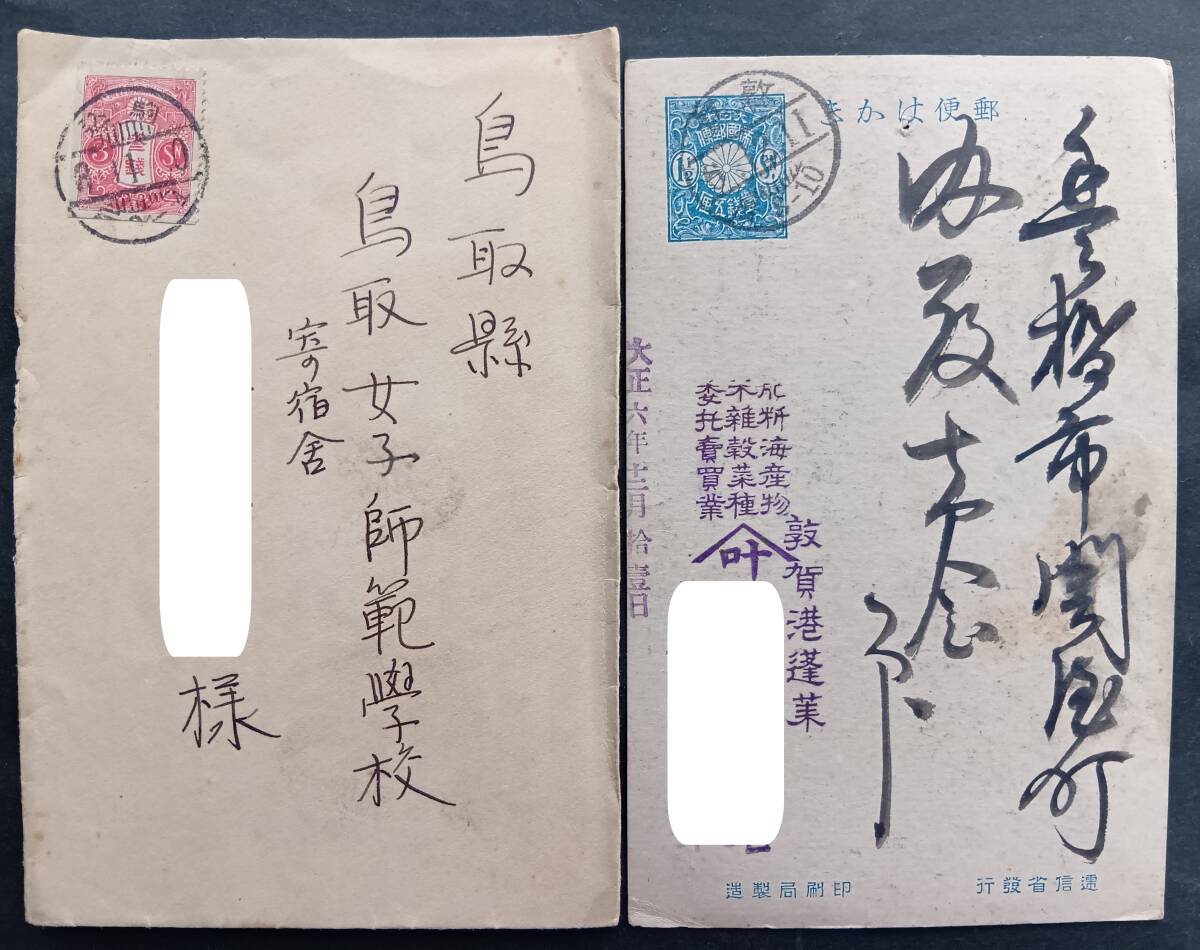 鳥取縣
鳥取女子師範學校
寄宿舎
様
3
三錢
郵便はかき
大日本
帝國郵便
1½
壹錢五厘
敦
豊橋市関屋町
大正六年十二月拾壹日
肥料海産物
米雜穀菜種
委托賣買業
叶
敦賀港蓬莱
逓信省發行
印刷局製造